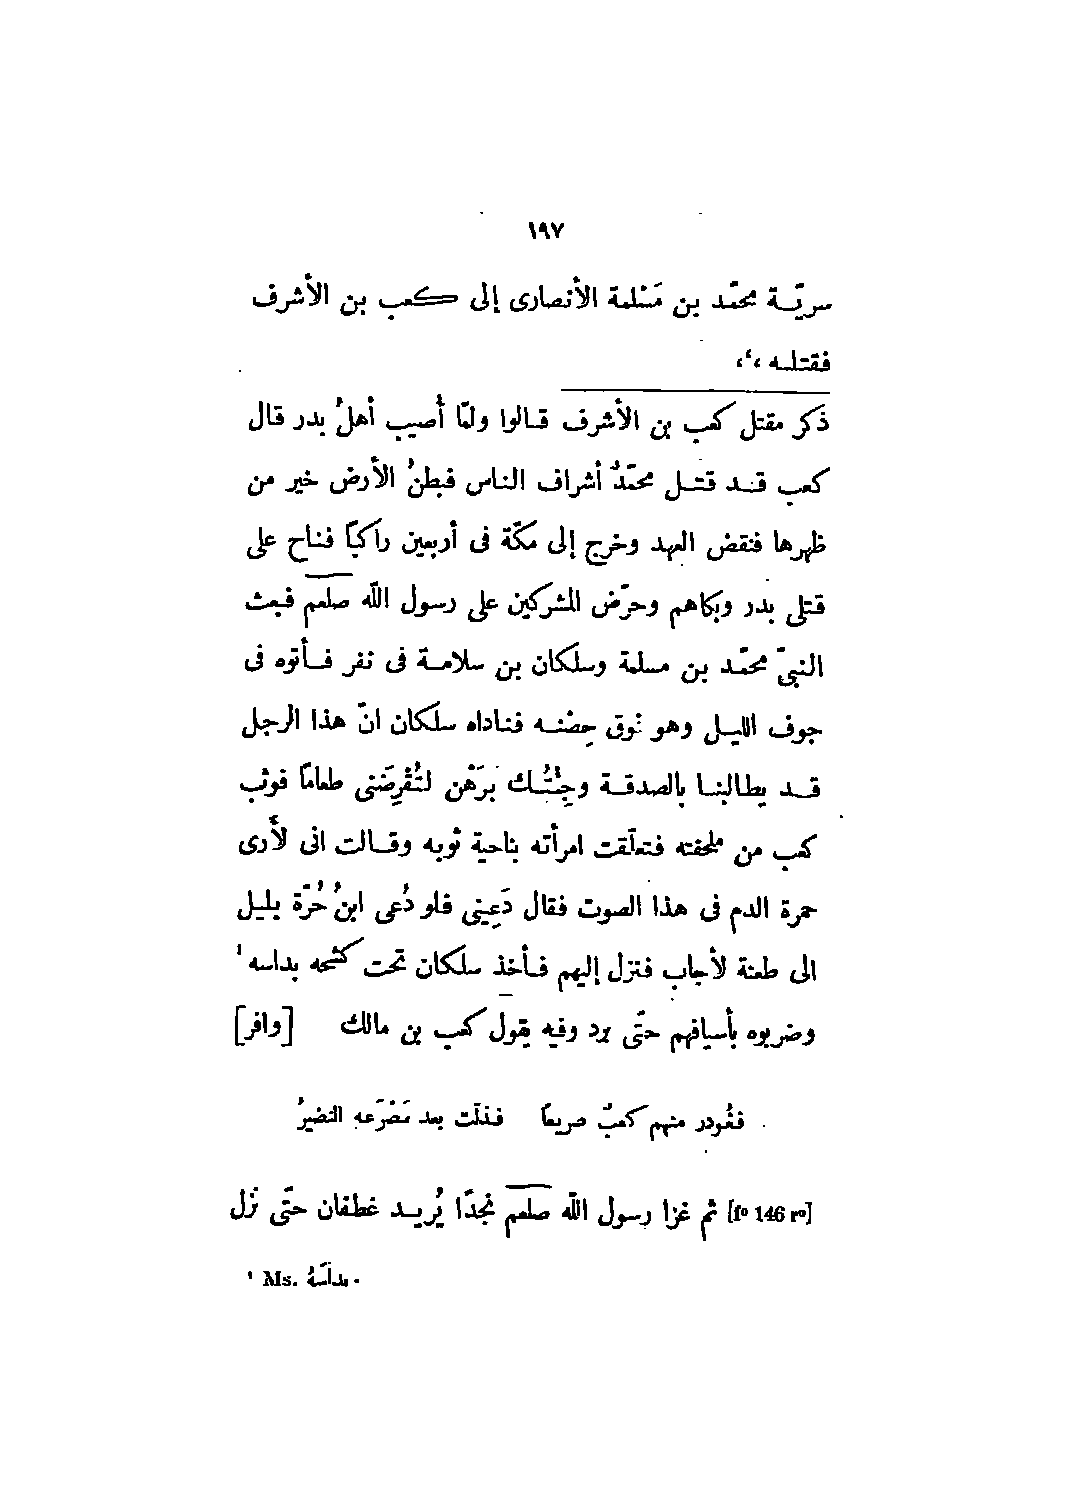 ١٩٧
سريّة محمّد بن مَسْلمة الأنصارى إلى كعب بن الأشرف
فقتله ،‘،
ذكر مقتل كعب بن الأشرف قالوا ولمّا أُصيب أهلُ بدر قال
كعب قد قتل محمّدٌ أشراف الناس فبطنُ الأرض خير من
ظهرها فنقض العهد وخرج إلى مكّة فى أربعين راكبًا فناح على
قتلى بدر وبكاهم وحرّض المشركين على رسول الله صلعم فبعث
النبىّ محمّد بن مسلمة وسلكان بن سلامة فى نفر فأتوه فى
جوف الليل وهو فوق حِصْنه فناداه سلكان انّ هذا الرجل
قد يطالبنا بالصدقة وجِئْتُك بَرَهْن لتُقْرِضَنى طعامًا فوثب
كعب من ملحفته فتعلّقت امرأته بناحية ثوبه وقالت انى لأَرى
حمرة الدم فى هذا الصوت فقال دَعِينى فلو دُعى ابنُ حُرّة بليل
الى طعنة لأجاب فنزل إليهم فأخذ سلكان تحت كشحه بداسه ¹
وضربوه بأسيافهم حتّى برد وفيه يقول كعب بن مالك [وافر]
فغُودر منهم كعبٌ صريعًا فذلّت بعد مَصْرَعه النضيرُ
[f° 146 r°] ثم غزا رسول الله صلعم نجدًا يُريد غطفان حتّى نزل
¹ Ms. بداَسهُ.